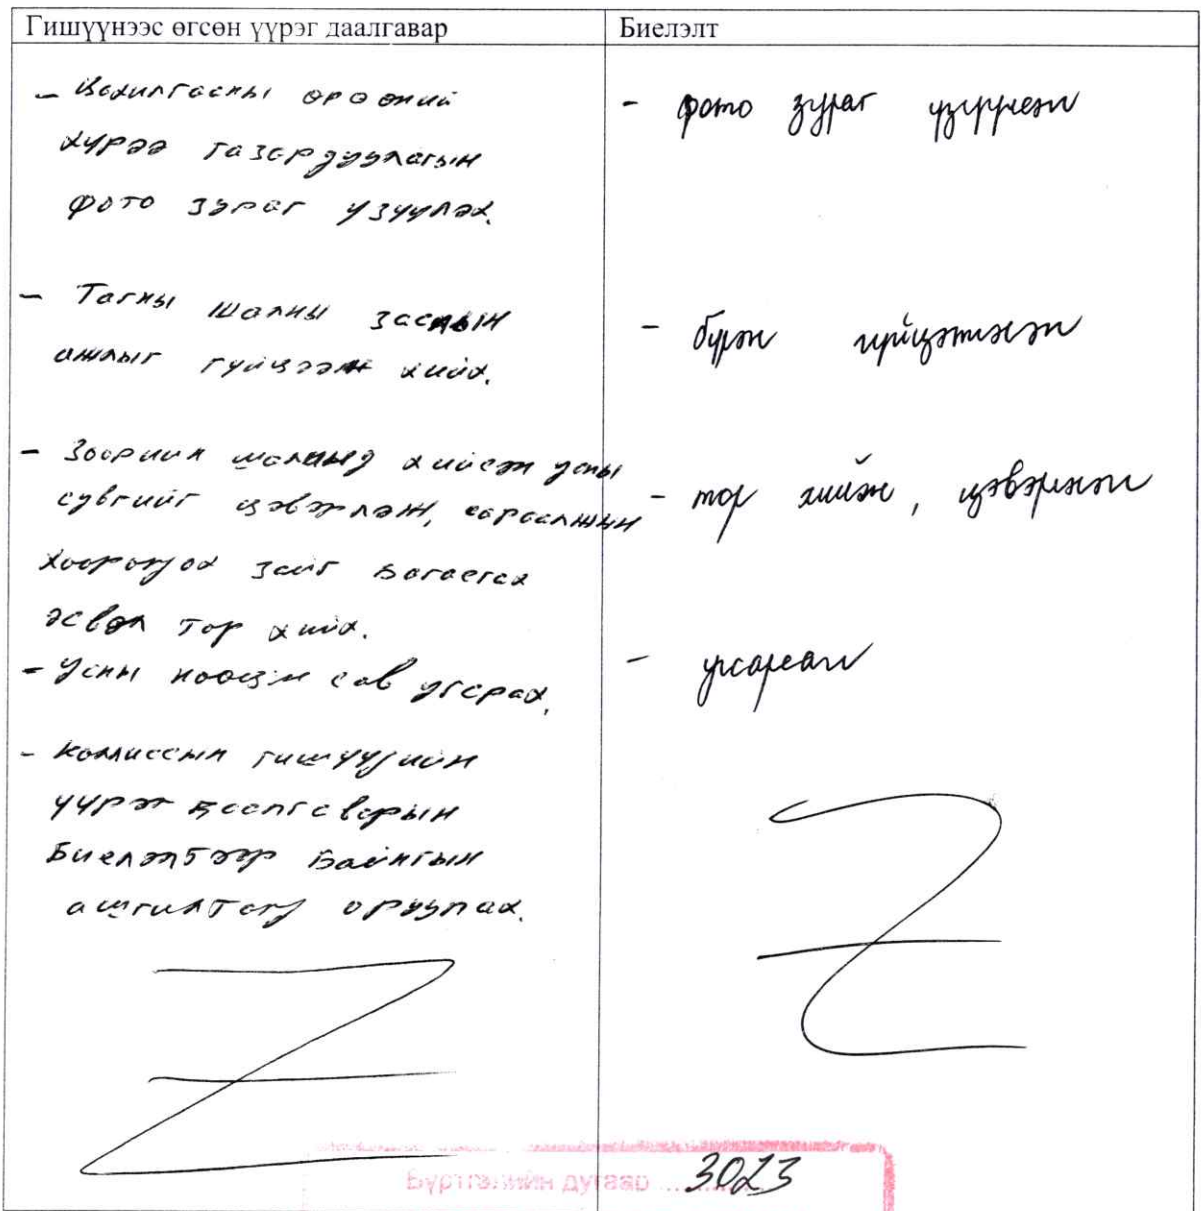 Гишүүнээс өгсөн үүрэг даалгавар
Биелэлт
- Цахилгааны өрөөний
хүрээ газардуулагын
фото зураг үзүүлэх.
- фото зураг үзүүлсэн
- Тагны шалны заслын
ажлыг гүйцээж хийх.
- бүрэн гүйцэтгэсэн
- Зоорийн шаланд хийсэн усны
сувгийг цэвэрлэж, сараалжин
хоорондох зайг багасгах
эсвэл тор хийх.
- тор хийж, цэвэрлэсэн
- Усны нөөцийн сав угсрах.
- угсарсан
- Комиссын гишүүдийн
үүрэг даалгаварын
Биелэлтээр Байнгын
ашгилтанд оруулах.
Бүртгэлийн дугаар ... 3023